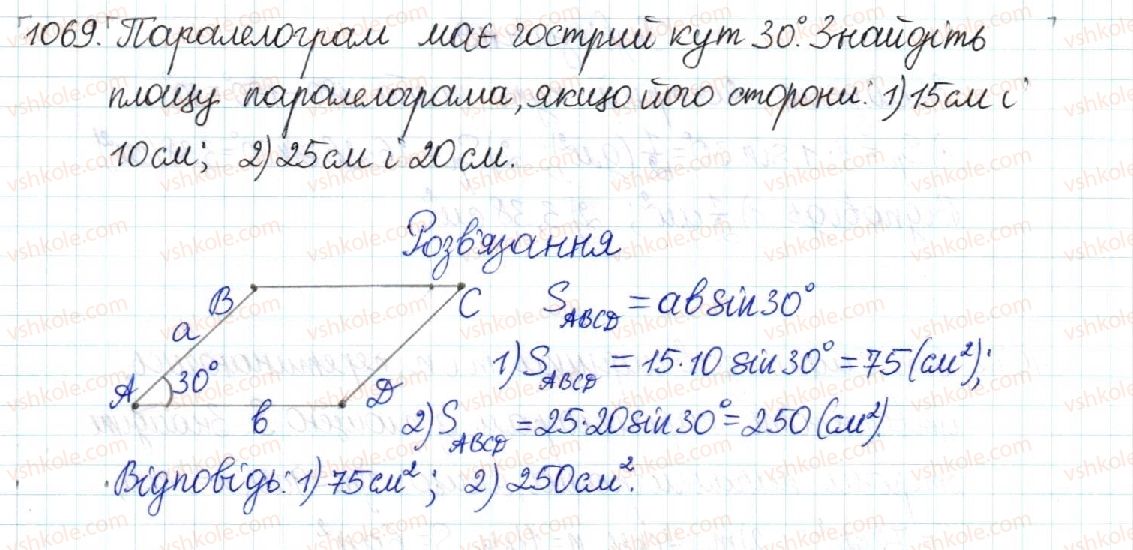 1069. Паралелограм має гострий кут 30°. Знайдіть
площу паралелограма, якщо його сторони: 1) 15см і
10см; 2) 25см і 20см.
Розв'язання
B C
a
A 30° D
в
S_ABCD = aвsin30°
1) S_ABCD = 15·10 sin30° = 75 (см²);
2) S_ABCD = 25·20sin30° = 250 (см²).
Відповідь: 1) 75см²; 2) 250см².
vshkole.com